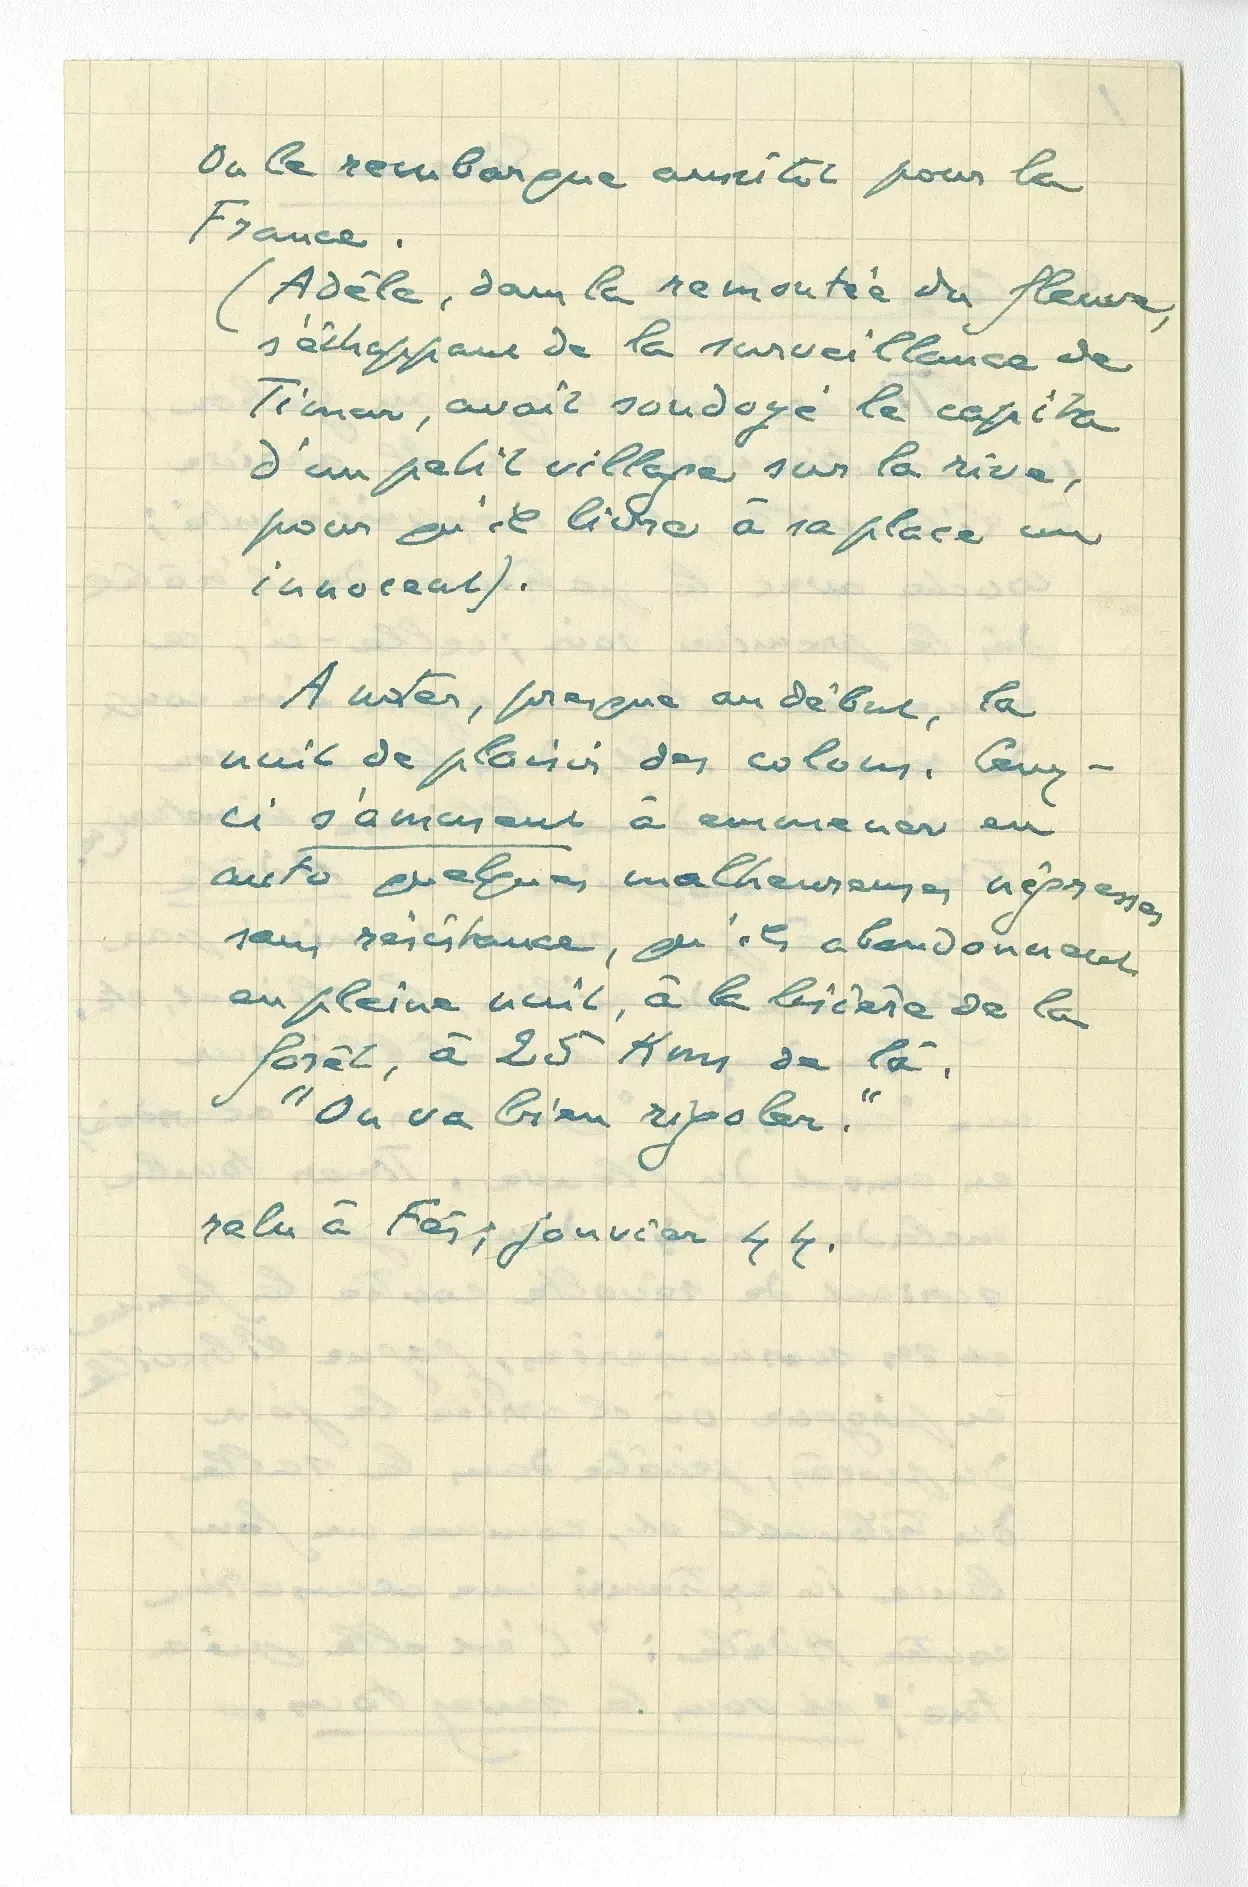 On le rembarque aussitôt pour la
France.
(Adèle, dans la remontée du fleuve,
s'échappant de la surveillance de
Timar, avait soudoyé le capita
d'un petit village sur la rive,
pour qu'il livre à sa place un
innocent).
A noter, presque au début, la
nuit de plaisir des colons. Ceux-
ci s'amusent à emmener en
auto quelques malheureuses négresses
sans résistance, qu'ils abandonnent
en pleine nuit, à la lisière de la
forêt, à 25 Kms de là.
"On va bien rigoler."
relu à Fès, janvier 44.